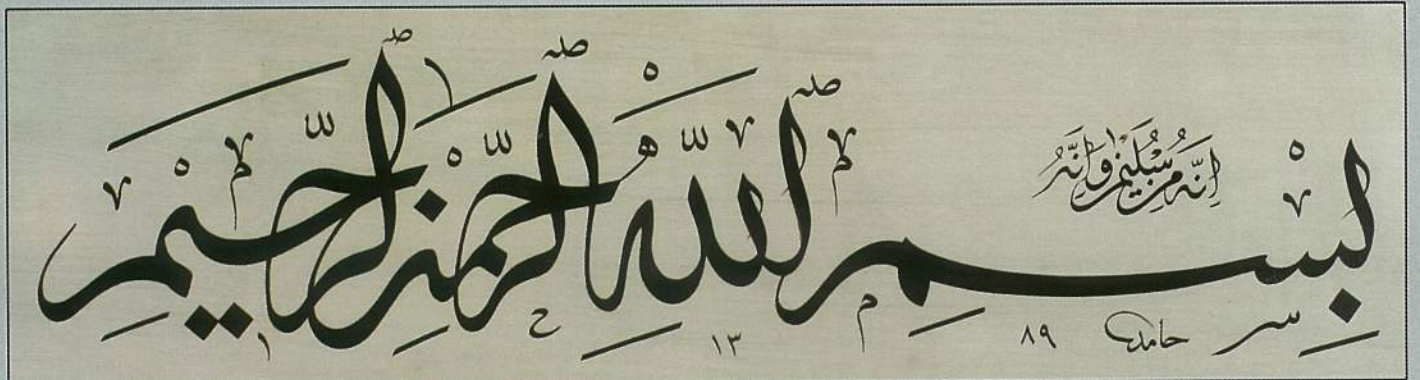 إِنَّهُ مِنْ سُلَيْمٰنَ وَإِنَّهُ
بِسْمِ اللّٰهِ الرَّحْمٰنِ الرَّحِيمِ
حامد ١٣٨٩